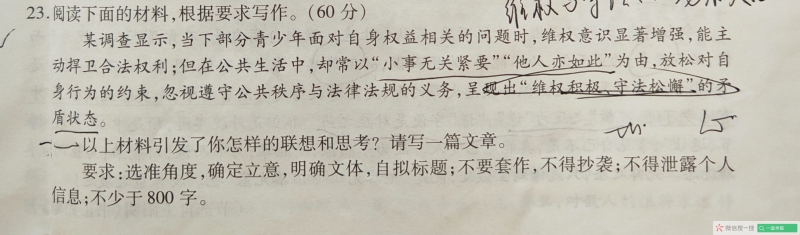 维权与守法
23.阅读下面的材料,根据要求写作。(60 分)
某调查显示,当下部分青少年面对自身权益相关的问题时,维权意识显著增强,能主
动捍卫合法权利;但在公共生活中,却常以“小事无关紧要”“他人亦如此”为由,放松对自
身行为的约束,忽视遵守公共秩序与法律法规的义务,呈现出“维权积极、守法松懈”的矛
盾状态。
以上材料引发了你怎样的联想和思考? 请写一篇文章。
要求:选准角度,确定立意,明确文体,自拟标题;不要套作,不得抄袭;不得泄露个人
信息;不少于 800 字。
微信搜一搜